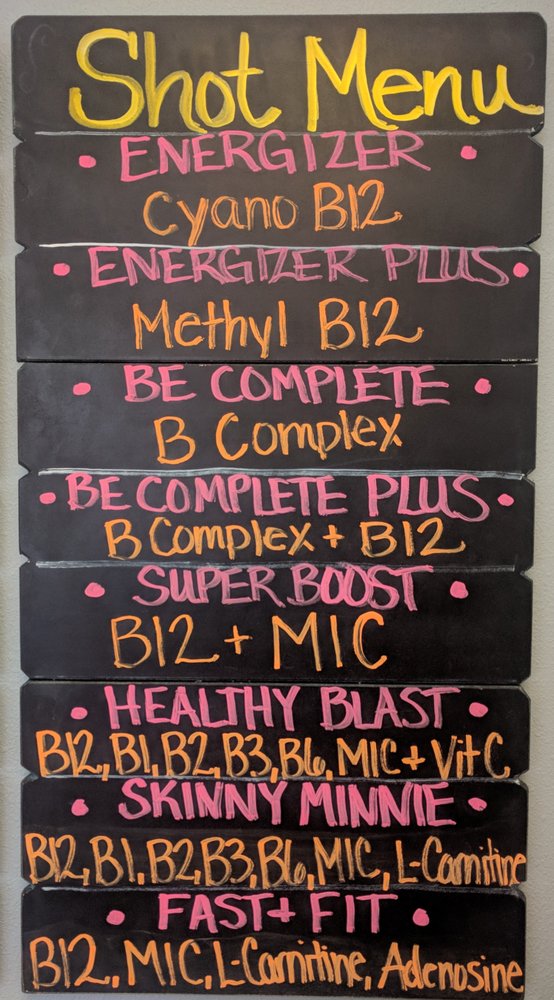 Shot Menu
• ENERGIZER •
Cyano B12
• ENERGIZER PLUS •
Methyl B12
• BE COMPLETE •
B Complex
• BE COMPLETE PLUS •
B Complex + B12
• SUPER BOOST •
B12 + MIC
• HEALTHY BLAST •
B12, B1, B2, B3, B6, MIC + Vit C
• SKINNY MINNIE •
B12, B1, B2, B3, B6, MIC, L-Carnitine
• FAST + FIT •
B12, MIC, L-Carnitine, Adenosine